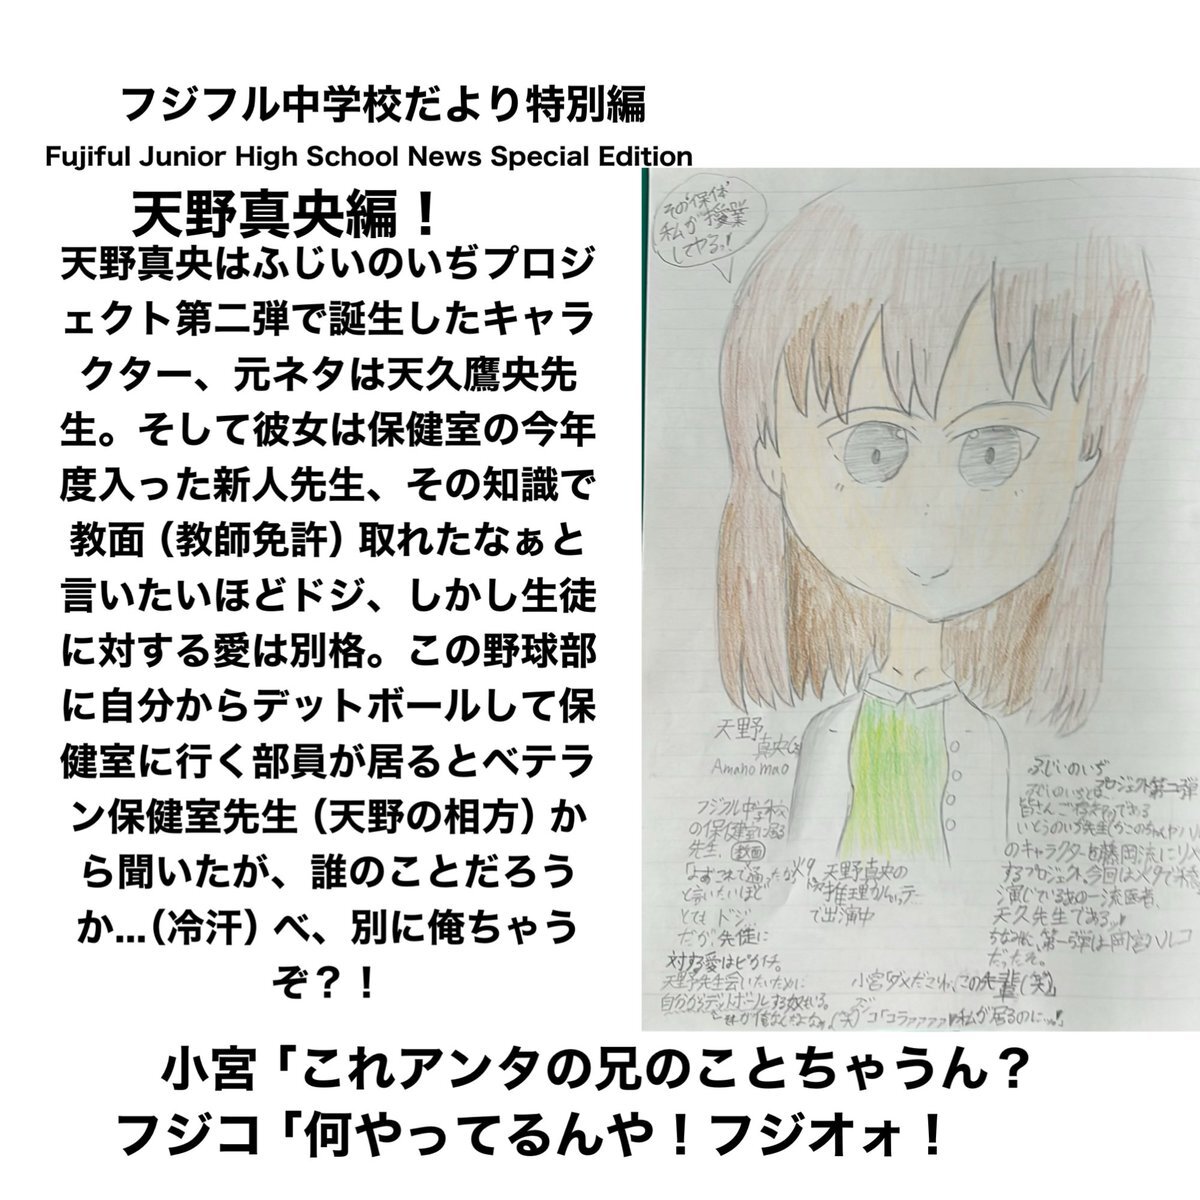 フジフル中学校だより特別編
Fujiful Junior High School News Special Edition
天野真央編！
天野真央はふじいのいぢプロジ
ェクト第二弾で誕生したキャラ
クター、元ネタは天久鷹央先
生。そして彼女は保健室の今年
度入った新人先生、その知識で
教面（教師免許）取れたなぁと
言いたいほどドジ、しかし生徒
に対する愛は別格。この野球部
に自分からデットボールして保
健室に行く部員が居るとベテラ
ン保健室先生（天野の相方）か
ら聞いたが、誰のことだろう
か...（冷汗）べ、別に俺ちゃう
ぞ？！
その"保体"
私が"授業"
してやるっ!
天野
真央
Amano mao
フジフル中学校
の保健室に居る
先生、教面
「よぉこれで通ったな」
と言いたいほど
とても ドジ
だが、生徒に
対する愛はピカイチ。
天野先生会いたいために
自分からデットボールする奴もいる。
天野真央の
推理カルテ
で出演中
ふじいのいぢ
プロジェクト第二弾
皆さんご存じである
いとうのいぢ先生
のキャラクターを藤岡流に
するプロジェクト。今回は
演じている
天久先生である。
ちなみに、第一弾は岡宮ハルコ
だったぞ。
小宮「ダメだこりゃ、この先輩(笑)」
ジコ「コラァァァァ!私が居るのに…!
小宮「これアンタの兄のことちゃうん？
フジコ「何やってるんや！フジオォ！